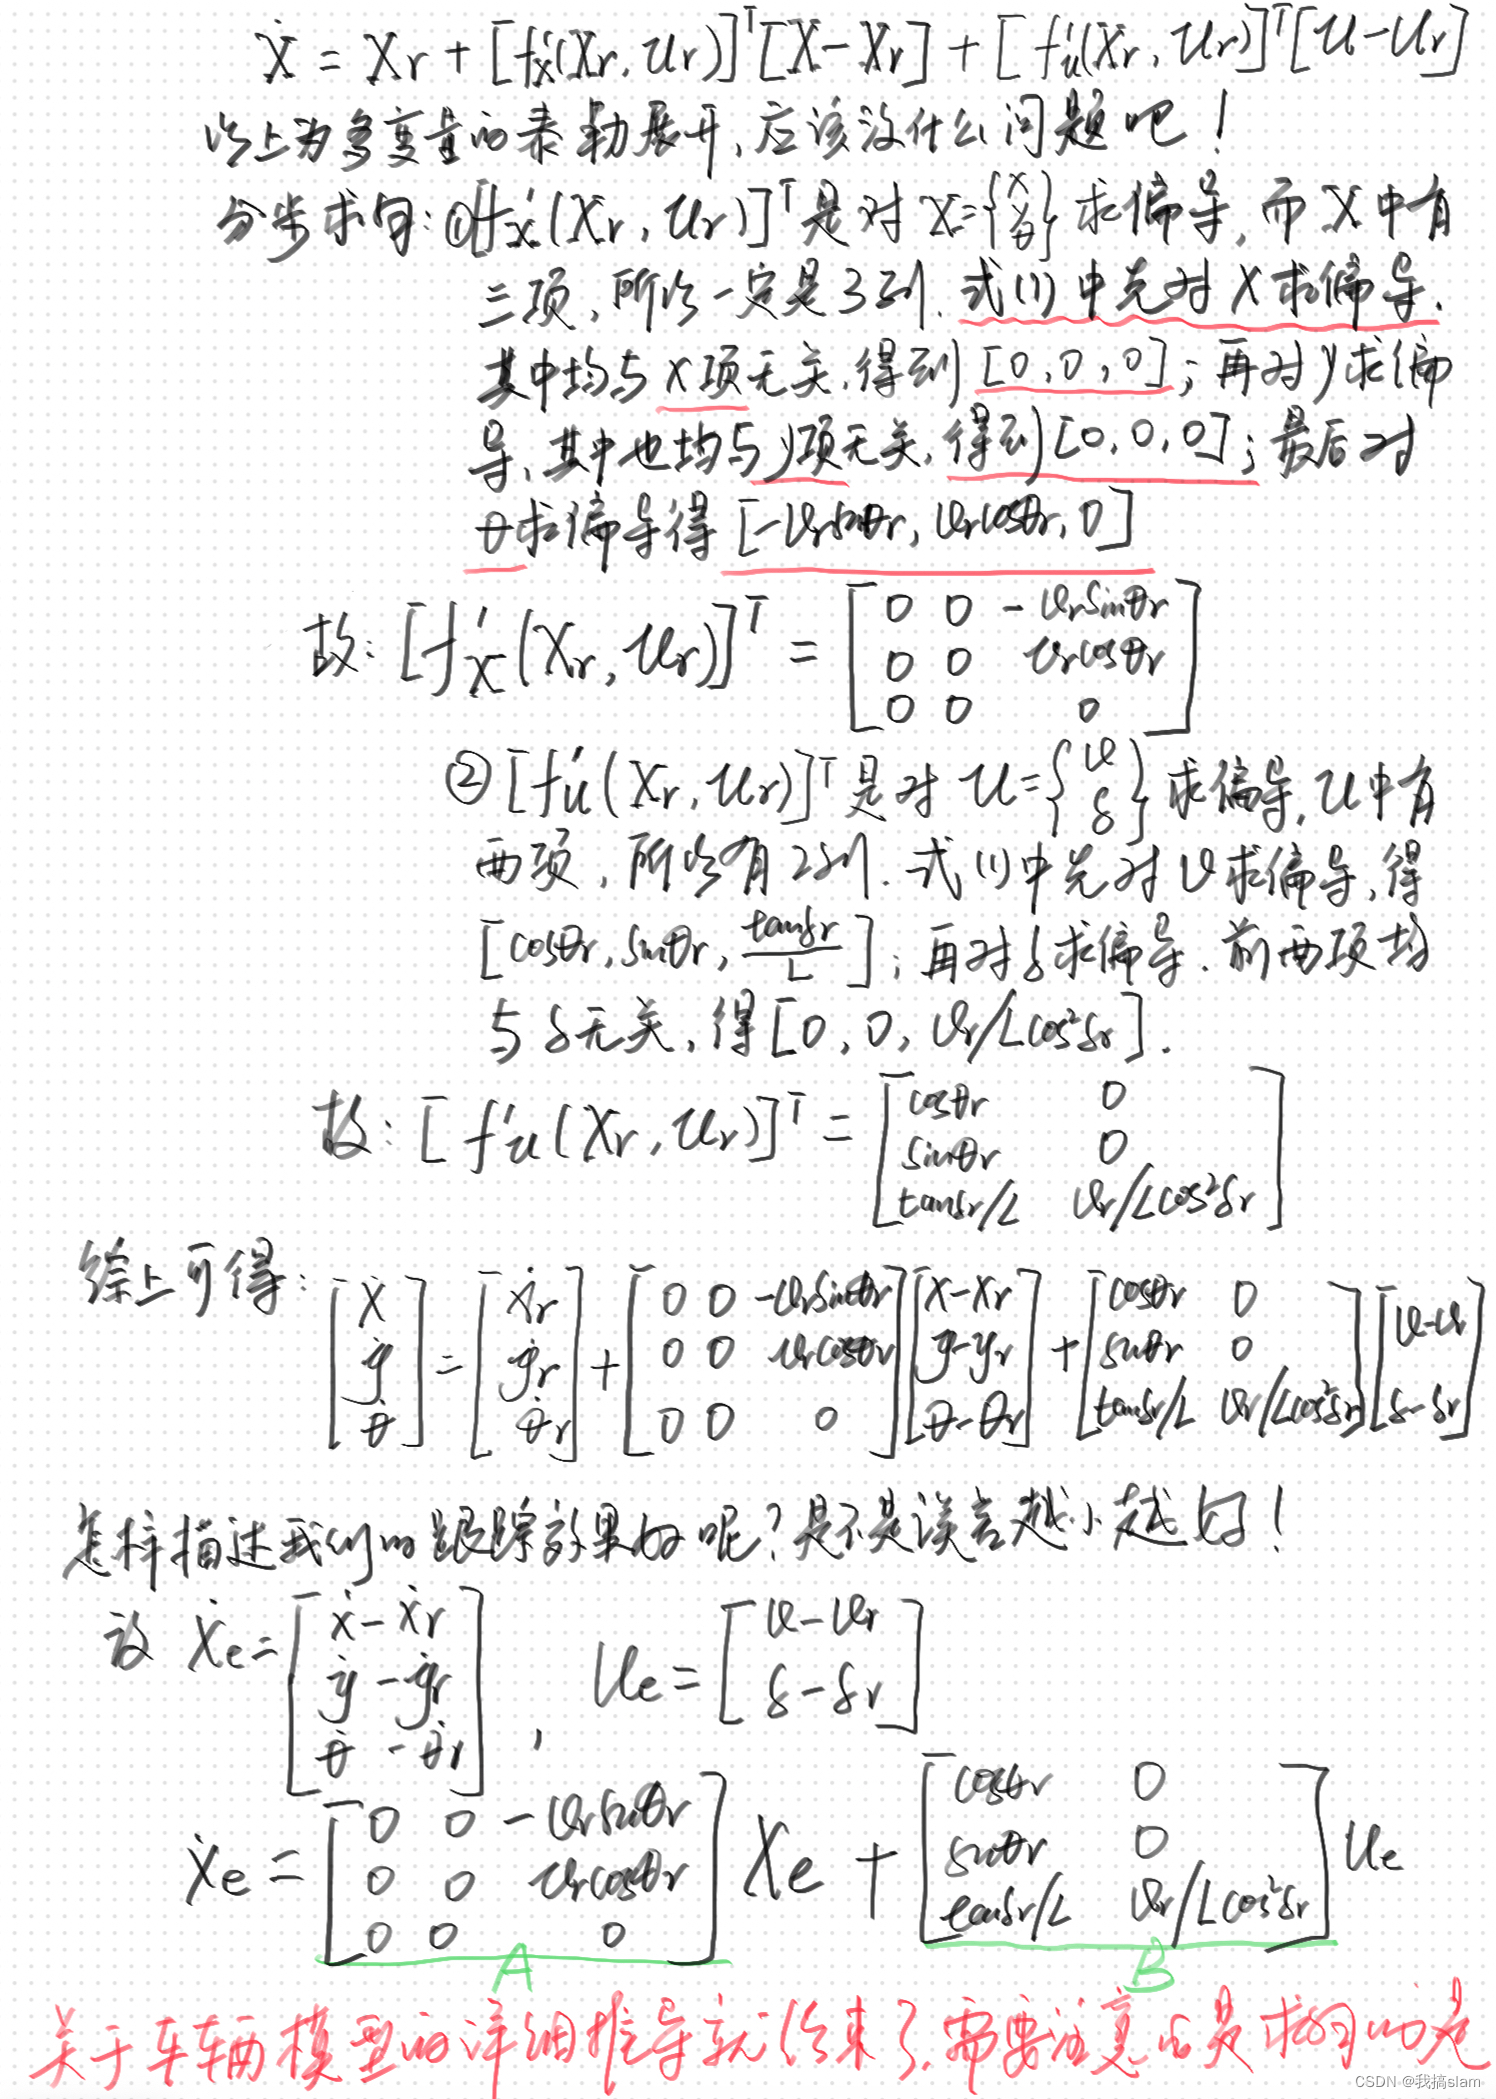 Ẋ = Ẋr + [f'x(Xr, Ur)]ᵀ[X-Xr] + [f'u(Xr, Ur)]ᵀ[U-Ur]
以上为多变量的泰勒展开,应该没什么问题吧!
分步求解:①[f'x(Xr, Ur)]ᵀ是对X={x y θ}求偏导,而X中有
三项,所以一定是3列.式(1)中先对X求偏导.
其中均与X项无关,得到[0,0,0];再对y求偏
导,其中也均与y项无关,得到[0,0,0];最后对
θ求偏导得[-vrsinθr, vrcosθr, 0]
故:[f'x(Xr, Ur)]ᵀ = [0 0 -vrsinθr
0 0 vrcosθr
0 0 0]
②[f'u(Xr, Ur)]ᵀ是对U={v δ}求偏导,U中有
两项,所以有2列.式(1)中先对v求偏导,得
[cosθr, sinθr, tanδr/L];再对δ求偏导.前两项均
与δ无关,得[0, 0, vr/Lcos²δr].
故:[f'u(Xr, Ur)]ᵀ = [cosθr 0
sinθr 0
tanδr/L vr/Lcos²δr]
综上可得:
[ẋ] = [ẋr] + [0 0 -vrsinθr][x-xr] + [cosθr 0][v-vr]
[ẏ] [ẏr] [0 0 vrcosθr][y-yr] [sinθr 0]
[θ̇] [θ̇r] [0 0 0][θ-θr] [tanδr/L vr/Lcos²δr][δ-δr]
怎样描述我们的跟踪效果好呢?是不是误差越小越好!
设 Ẋe = [ẋ-ẋr
ẏ-ẏr
θ̇-θ̇r], Ue = [v-vr
δ-δr]
Ẋe = [0 0 -vrsinθr] Xe + [cosθr 0] Ue
[0 0 vrcosθr] [sinθr 0]
[0 0 0] [tanδr/L vr/Lcos²δr]
A B
关于车辆模型的详细推导就结束了,需要注意的是求的是
CSDN @我搞slam